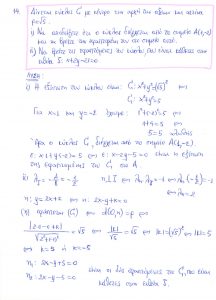 14. Δίνεται κύκλος C με κέντρο την αρχή των αξόνων και ακτίνα
ρ=√5.
i) Να αποδείξετε ότι ο κύκλος διέρχεται από το σημείο A(1,-2)
και να βρείτε την εφαπτομένη του στο σημείο αυτό.
ii) Να βρείτε τις εφαπτόμενες του κύκλου που είναι κάθετες στην
ευθεία δ: x+2y-2=0
Λύση:
i) Η εξίσωση του κύκλου είναι: C: x²+y²=(√5)²
C: x²+y²=5
Για x=1 και y=-2 έχουμε: 1²+(-2)²=5 ⇔
4+1=5 ⇔
5=5 αληθές
Άρα ο κύκλος C διέρχεται από το σημείο A(1,-2)
ε: x·1+y(-2)=5 ⇔ ε: x-2y-5=0 είναι η εξίσωση
της εφαπτομένης της C στο A.
n: y=2x+κ ⇔ n: 2x-y+κ=0
(n) εφάπτεται (C) ⇔ d(O,n)=ρ ⇔
|2·0-0+κ| / √(2²+(-1)²) = √5 ⇔ |κ|/√5 = √5 ⇔ |κ|=(√5)² ⇔ |κ|=5
⇔ κ=5 ή κ=-5
n₁: 2x-y+5=0
n₂: 2x-y-5=0
είναι οι δύο εφαπτόμενες της C, που είναι
κάθετες στην ευθεία δ.